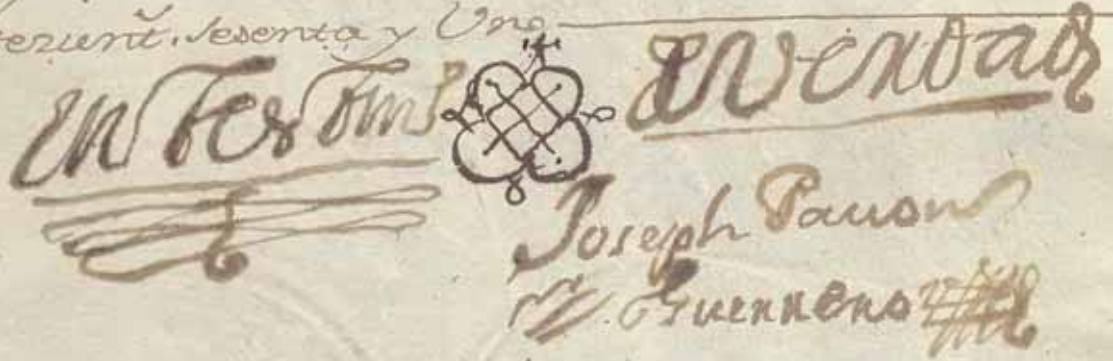 sesenta y Uno
En testimo de verdad
Joseph Pavon
y Guerrero